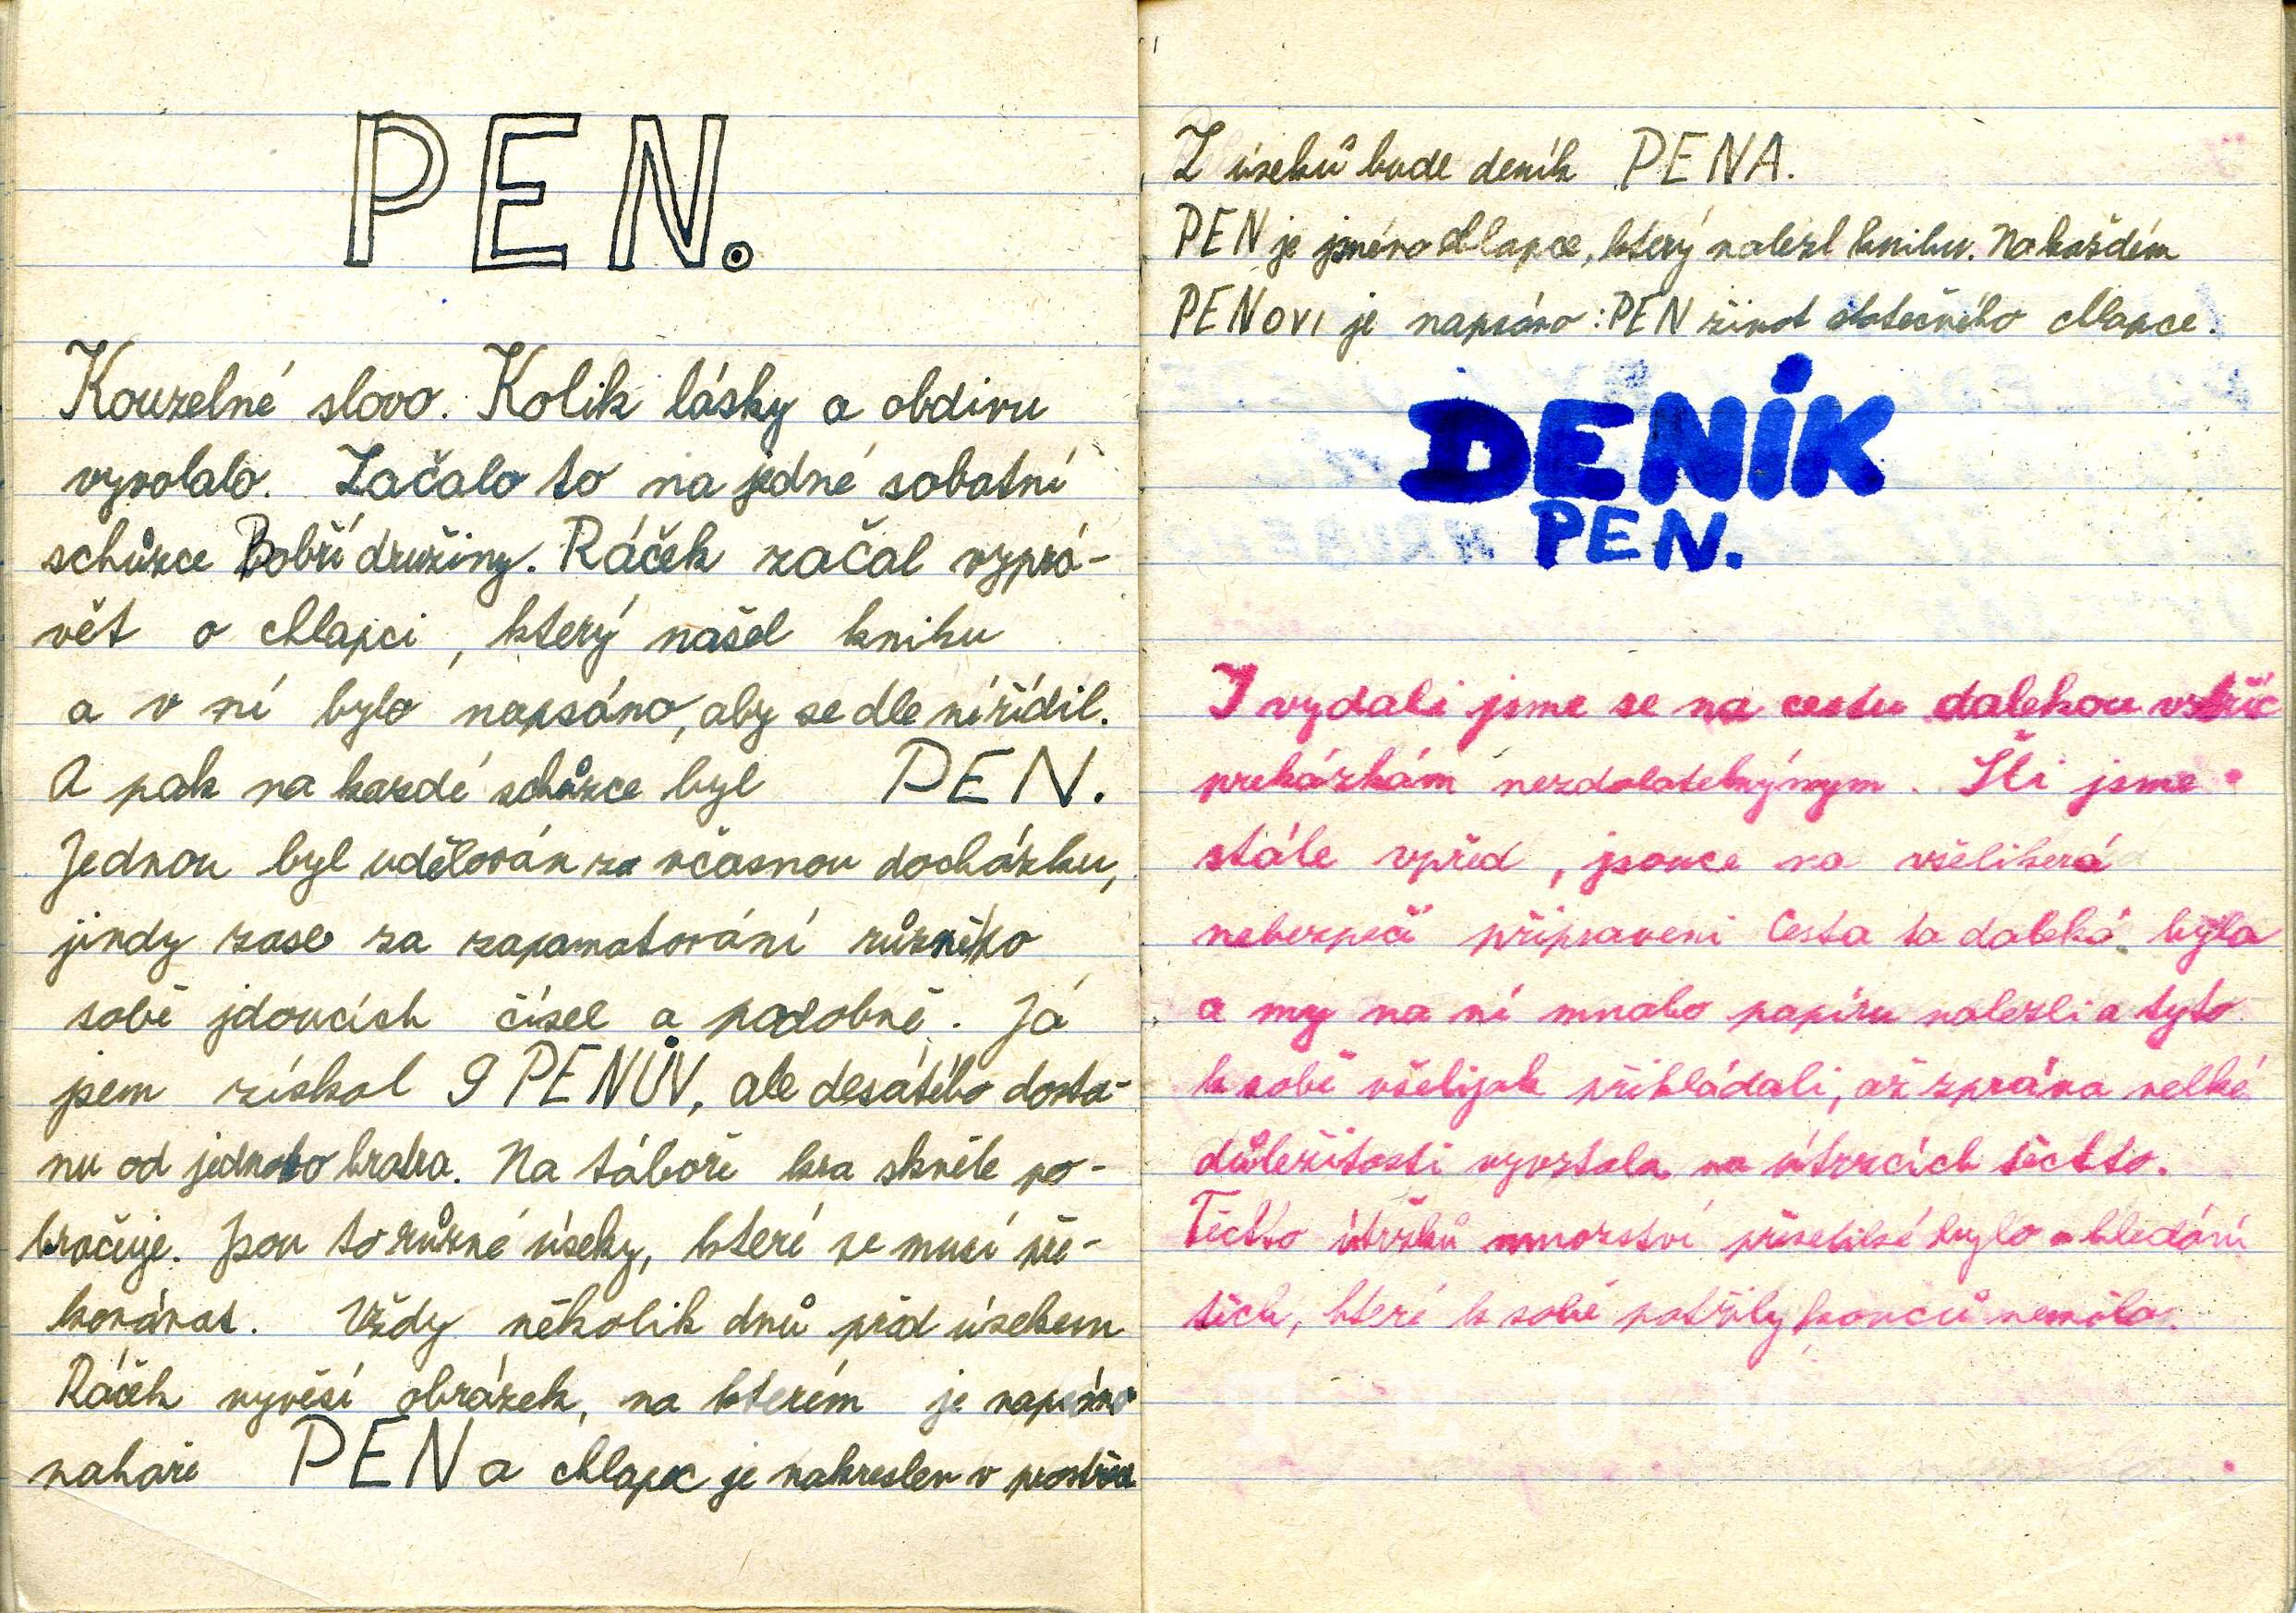 PEN.
Kouzelné slovo. Kolik lásky a obdivu
vyvolalo. Začalo to na jedné sobotní
schůzce Bobří družiny. Ráček začal vyprá-
vět o chlapci, který našel knihu
a v ní bylo napsáno, aby se dle ní řídil.
A pak na kazdé schůzce byl PEN.
Jednou byl udělován za včasnou docházku,
jindy zase za zapamatování různě ko
sobě jdoucích čísel a podobně. Já
jsem získal 9 PENŮV, ale desátého dosta-
nu od jednoho bratra. Na táboře hra skvěle po-
kračuje. Jsou to různé úseky, které se musí pře-
konávat. Vždy několik dnů před úsekem
Ráček vyvěsí obrázek, na kterém je napsáno
nahoře PEN a chlapec je nakreslen v prostřed
Z úseků bude deník PENA.
PEN je jméno chlapce, který nalezl knihu. Na každém
PENOVI je napsáno: PEN život statečného chlapce.
DENÍK
PEN.
I vydali jsme se na cestu dalekou vstříc
prekážkám nezdolatelnýmym. Šli jsme
stále vpřed, jsouce na všeliterá
nebezpečí připraveni Cesta ta daleká byla
a my na ní mnoho papíru nalezli a tyto
k sobě všelijak přikládali, až zpráva velké
důležitosti vyvstala na útrzcích těchto.
Těchto útržků mnozství převeliké bylo a hledání
těch, které k sobě patřily konců nemělo.